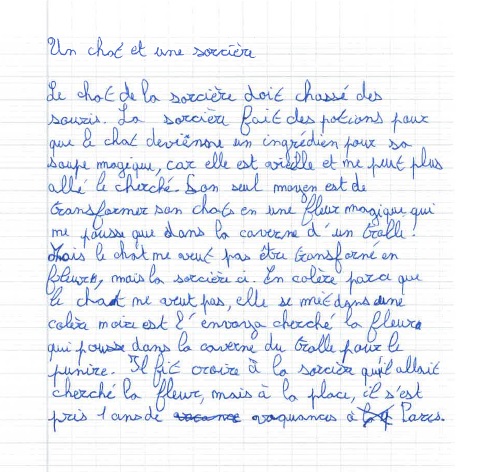 Un chat et une sorcière
Le chat de la sorcière doit chassé des
souris. La sorcière fait des potions pour
que le chat deviênne un ingrédien pour sa
soupe magique, car elle est vieille et ne peut plus
allé le cherché. Son seul moyen est de
transformer son chat en une fleur magique qui
ne pousse que dans la caverne d'un trolle !
Mais le chat ne veut pas être transformé en
fleur, mais la sorcière si. En colère parce que
le chat ne veut pas, elle se met dans une
colère noire est l'envoya cherché la fleur
qui pousse dans la caverne du trolle pour le
punire. Il fit croire à la sorcière qu'il allait
cherché la fleur, mais à la place, il s'est
pris 1 ans de vaquances à Paris.